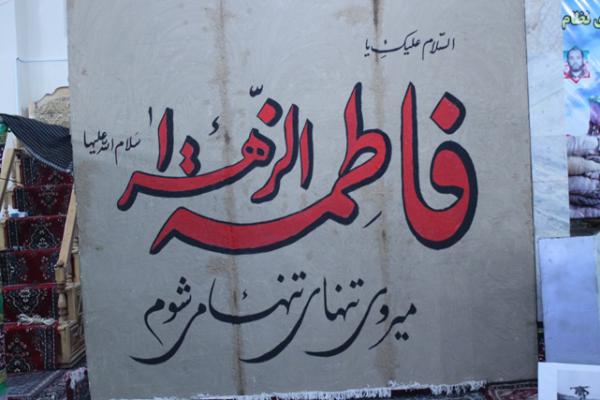 السلام علیک یا
فاطمة الزهرا
سلام الله علیها
میروی تنهای تنها می شوم